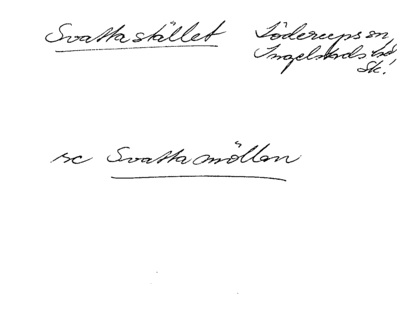 Svattastället Löderups sn,
Ingelstads hd,
Sk.
se Svattamöllan